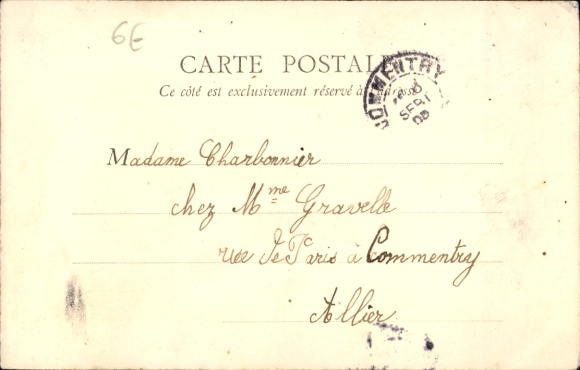 6E
CARTE POSTALE
Ce côté est exclusivement réservé à l'adresse
COMMENTRY
SEPT
Madame Charbonnier
chez Mme Gravelle
rue de Paris à Commentry
Allier